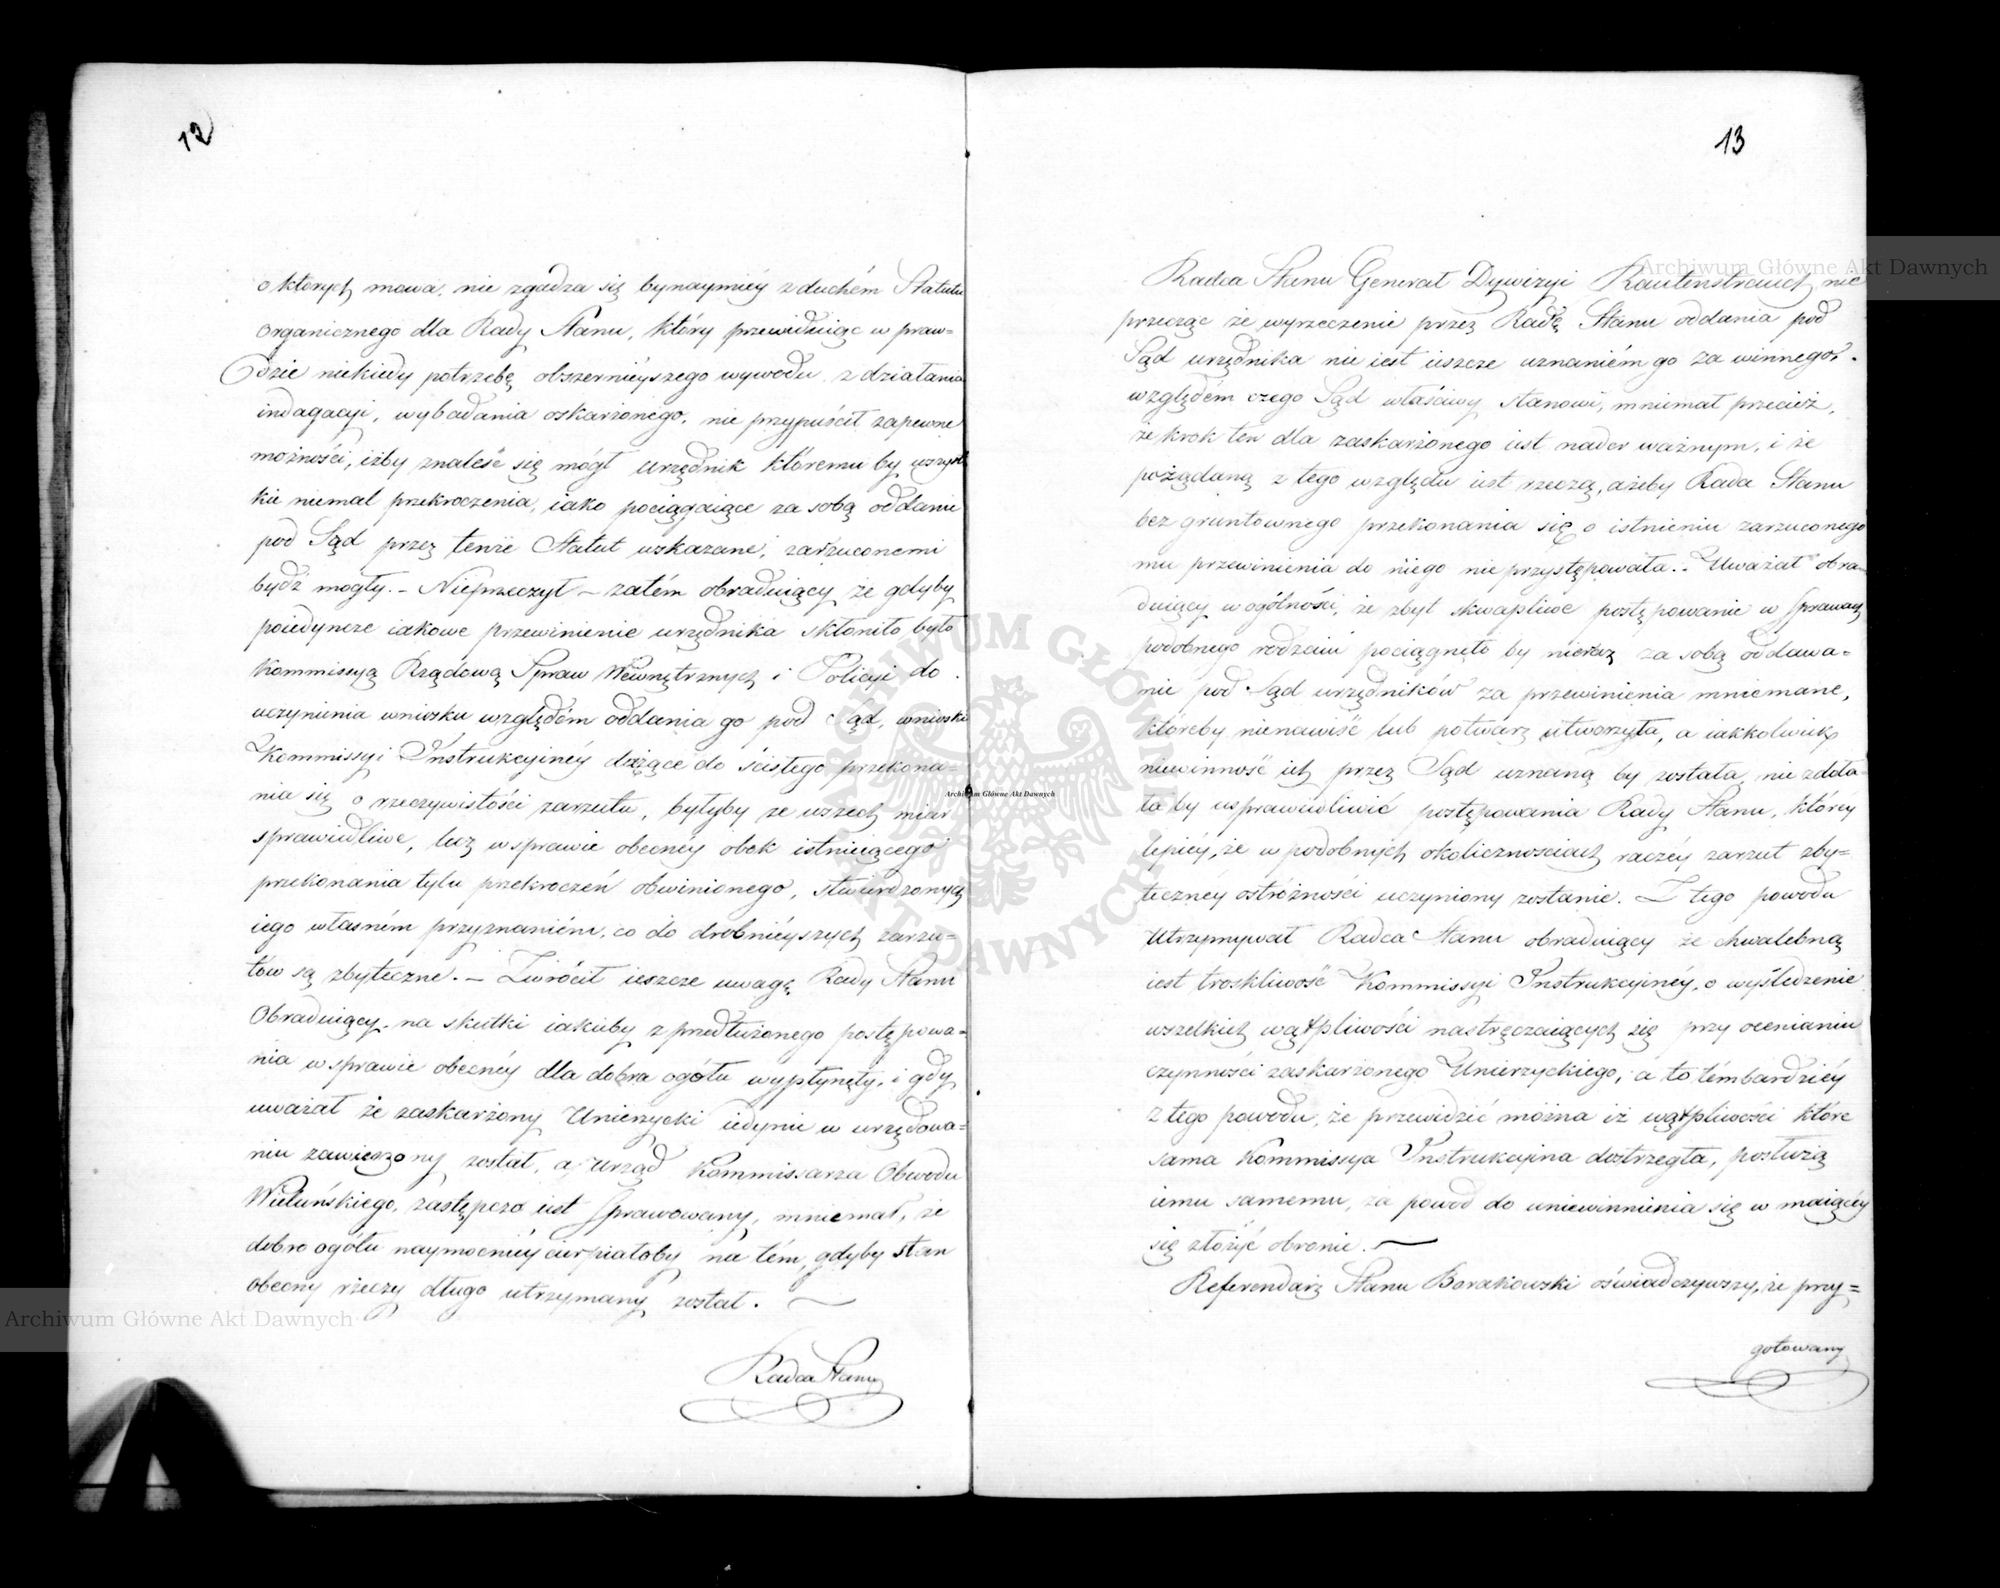 12
o których mowa, nie zgadza się bynaymniéy z duchém Statutu
organicznego dla Rady Stanu, który przewiduiąc w praw=
dzie niekiedy potrzebę obszernieyszego wywodu z działania
indagacyi, wybadania oskarżonego, nie przypuścił zapewne
możności, iżby znaleść się mógł urzędnik któremu by wszyst
kie niemal przekroczenia, iako pociągaiące za sobą oddanie
pod Sąd przez tenże Statut wskazane, zarzuconemi
bydź mogły. – Nieprzeczył – zatém obraduiący że gdyby
poiedyncze iakowe przewinienie urzędnika skłoniło było
Kommissyą Rządową Spraw Wewnętrznych i Policyi do
uczynienia wniosku względém oddania go pod Sąd, wnioski
Kommissyi Instrukcyinéy dążące do ścisłego przekona=
nia się o rzeczywistości zarzutu, byłyby ze wszech miar
sprawiedliwe, lecz w sprawie obecnéy obok istnieiącego
przekonania tylu przekroczeń obwinionego, stwierdzonych
iego własném przyznaniém, co do drobnieyszych zarzu=
tów są zbyteczne. – Zwrócił ieszcze uwagę Rady Stanu
Obraduiący, na skutki iakieby z przedłużonego postępowa=
nia w sprawie obecnéy dla dobra ogółu wypłynęły, i gdy
uważał że zaskarżony Unierzycki iedynie w urzędowa=
niu zawieszony został, a urząd Kommissarza Obwodu
Wieluńskiego, zastępczo iest sprawowany, mniemał, że
dobro ogółu naymocniéy cierpiałoby na tém, gdyby stan
obecny rzeczy długo utrzymany został.
Radca Stanu
13
Radca Stanu Generał Dywizyi Rautenstrauch nie
przecząc że wyrzeczenie przez Radę Stanu oddania pod
Sąd urzędnika nie iest ieszcze uznaniém go za winnego
względém czego Sąd właściwy stanowi, mniemał przecież,
że krok ten dla zaskarżonego iest nader ważnym, i że
pożądaną z tego względu iest rzeczą, ażeby Rada Stanu
bez gruntownego przekonania się o istnieniu zarzuconego
mu przewinienia do niego nie przystępowała. – Uważał obra=
duiący w ogólności, że zbyt skwapliwe postępowanie w sprawach
podobnego rodzaiu pociągnęło by nieraz za sobą oddawa=
nie pod Sąd urzędników za przewinienia mniemane,
któreby nienawiść lub potwarz utworzyła, a iakkolwiek
niewinność ich przez Sąd uznaną by została, nie zdoła=
ła by usprawiedliwić postępowania Rady Stanu, któréy
lepiéy, że w podobnych okolicznościach raczéy zarzut zby=
teczney ostróżności uczyniony zostanie. Z tego powodu
utrzymywał Radca Stanu obraduiący że chwalebną
iest troskliwość Kommissyi Instrukcyinéy, o wyśledzenie
wszelkich wątpliwości nastręczaiących się przy ocenianiu
czynności zaskarżonego Unierzyckiego, a to témbardziéy
z tego powodu, że przewidzić można iż wątpliwości które
sama Kommissya Instrukcyina dostrzegła, posłużą
iemu samemu, za powód do uniewinnienia się w maiącéy
się złożyć obronie.
Referendarz Stanu Borakowski oświadczywszy, że przy=
gotowany
Archiwum Główne Akt Dawnych
Archiwum Główne Akt Dawnych
Archiwum Główne Akt Dawnych
ARCHIWUM GŁÓWNE AKT DAWNYCH